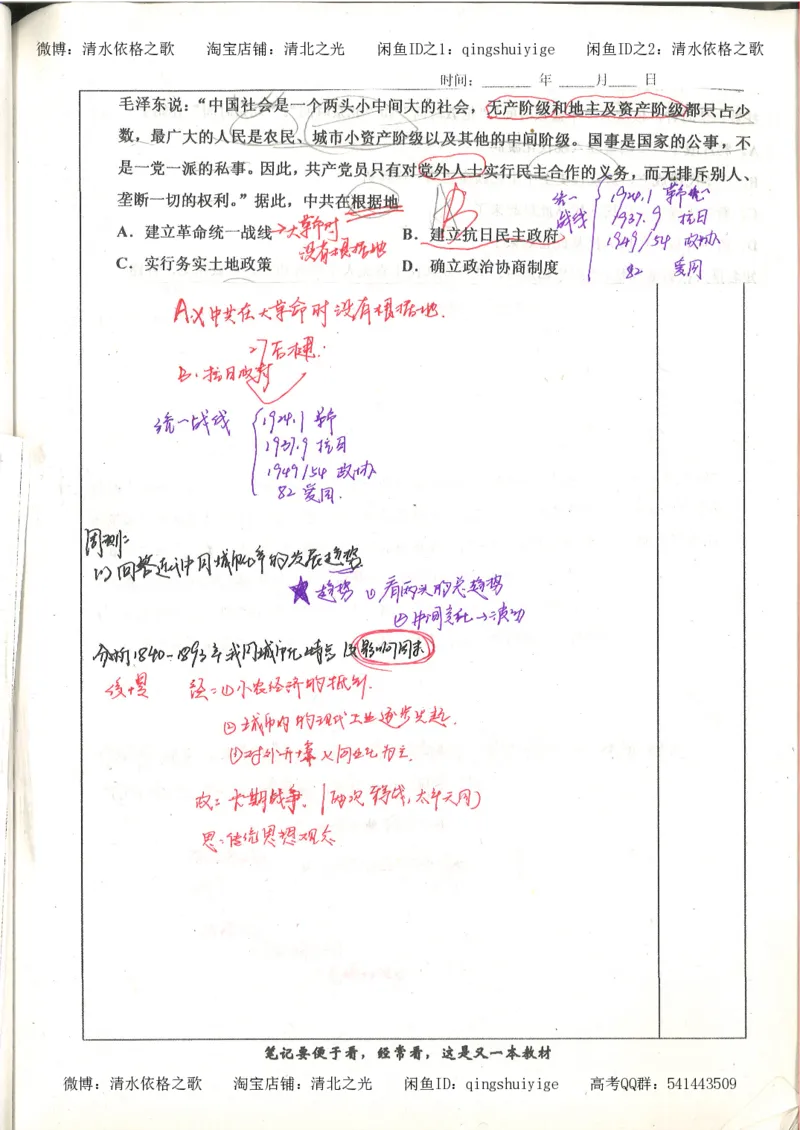 微博：清水依格之歌 淘宝店铺：清北之光 闲鱼ID之1：qingshuiyige 闲鱼ID之2：清水依格之歌
时间：____ 年 ____月____ 日
毛泽东说：“中国社会是一个两头小中间大的社会，无产阶级和地主及资产阶级都只占少
数，最广大的人民是农民、城市小资产阶级以及其他的中间阶级。国事是国家的公事，不
是一党一派的私事。因此，共产党员只有对党外人士实行民主合作的义务，而无排斥别人、
垄断一切的权利。”据此，中共在根据地
A．建立革命统一战线→大革命时没有根据地
B．建立抗日民主政府
C．实行务实土地政策
D．确立政治协商制度
B
统一战线
1924.1 革统一
1937.9 抗日
1949/54 政协
82 爱国
A.X中共在大革命时没有根据地.
27后建.
B.抗日政府
统一战线
1924.1 革
1937.9 抗日
1949/54 政协
82 爱国.
周测:
(1) 回答近代中国城市化率的发展趋势.
★趋势 ①看两头的总趋势
②中间变化→波动
分析1840-1893年我国城市化特点及影响因素
缓慢 经:①小农经济的抵制.
②城市内的现代工业逐步兴起.
①对外开埠 以商业化为主.
政:长期战争.(两次鸦战,太平天国)
思:传统思想观念
笔记要便于看，经常看，这是又一本教材
微博：清水依格之歌 淘宝店铺：清北之光 闲鱼ID：qingshuiyige 高考QQ群：541443509